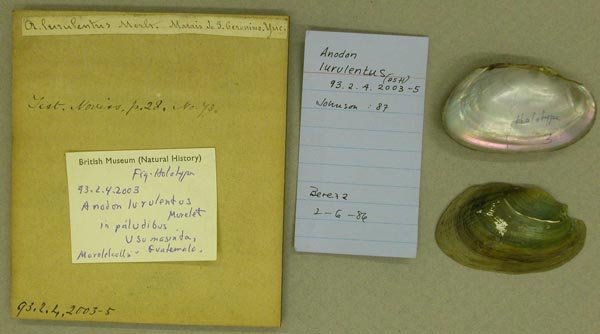 A. lurulentus Morel. Marais de S. Geronimo, Yuc.
Test. Noviss. p. 28. No. 43.
British Museum (Natural History)
Fig. Holotype
93.2.4.2003
Anodon lurulentus
Morelet
in paludibus
Usumasinta,
Guatemala.
93.2.4.2003-5
Anodon
lurulentus
93.2.4.2003-5
Johnson : 87
Bereza
2-6-86
Holotype